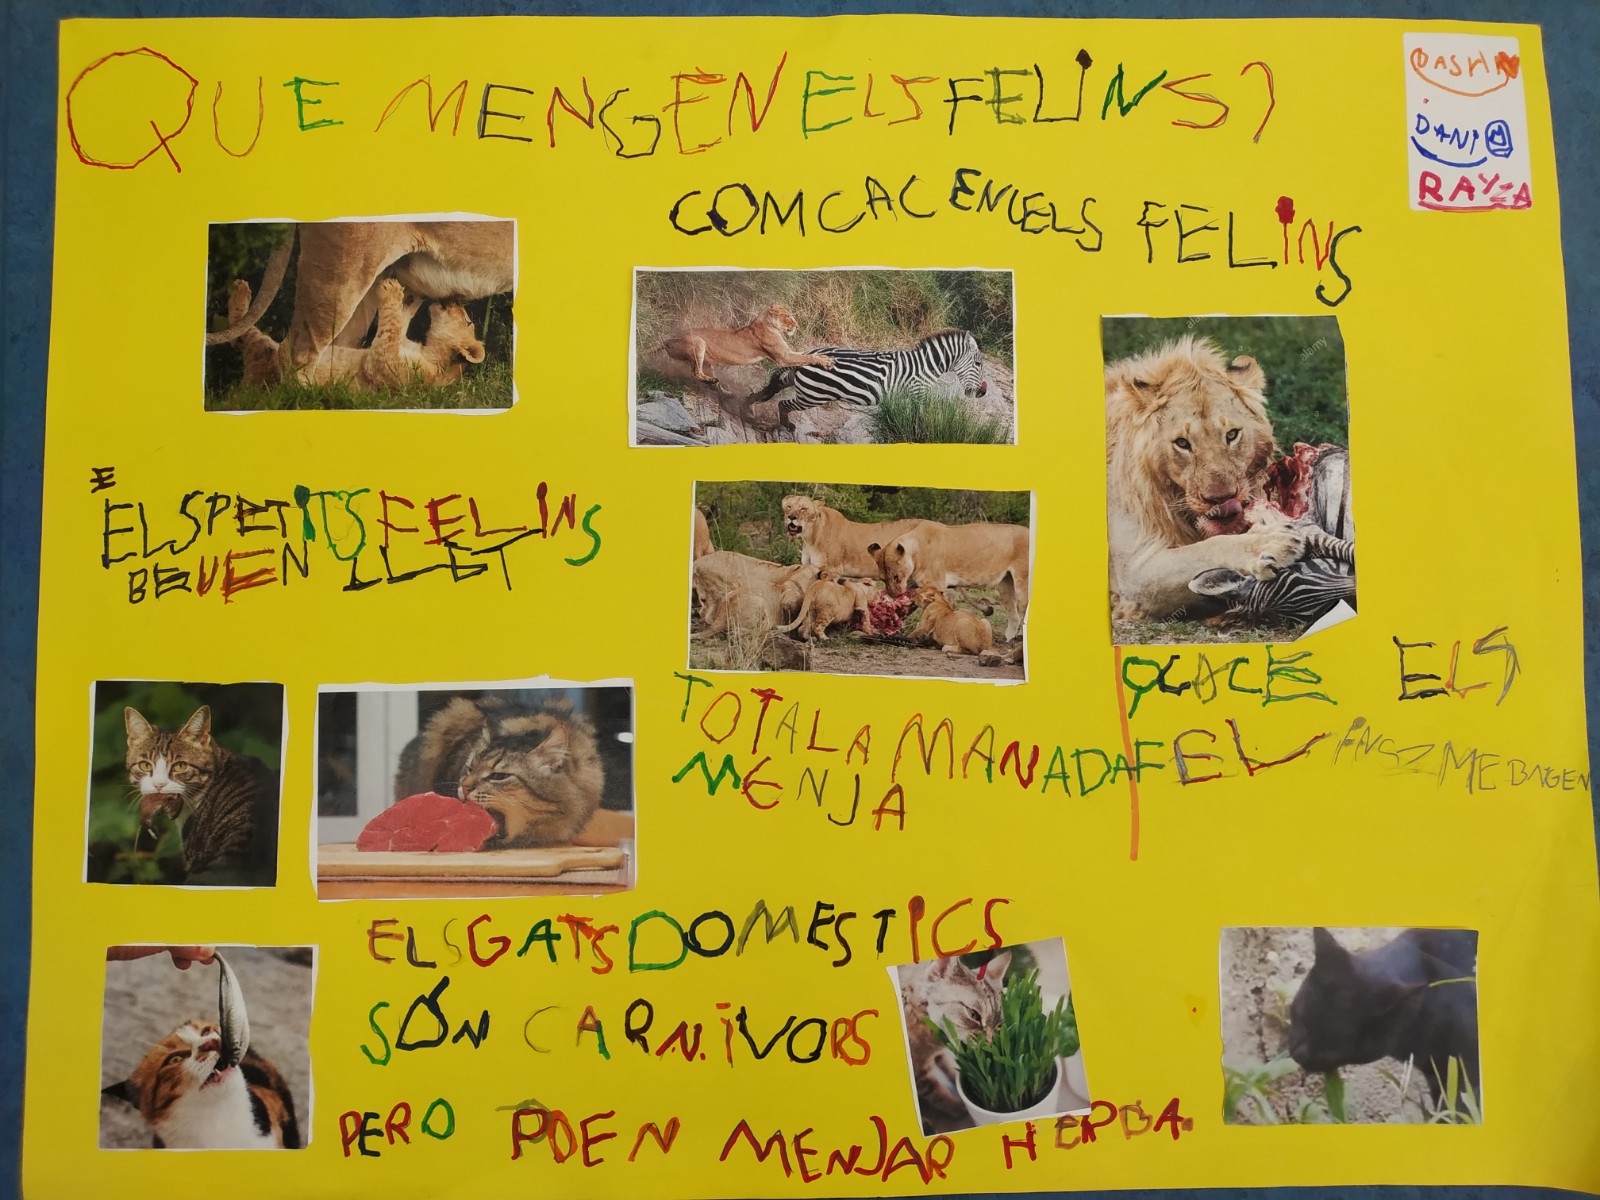 QUE MENGEN ELS FELINS?
DASHA
DANI
RAYZA
COM CACEN ELS FELINS
ELS PETITS FELINS
BEUEN LLET
TOTA LA MANADA
MENJA
ELS
FELINS
ELS GATS DOMESTICS
SÓN CARNIVORS
PERO POEN MENJAR HERBA.
alamy
alamy